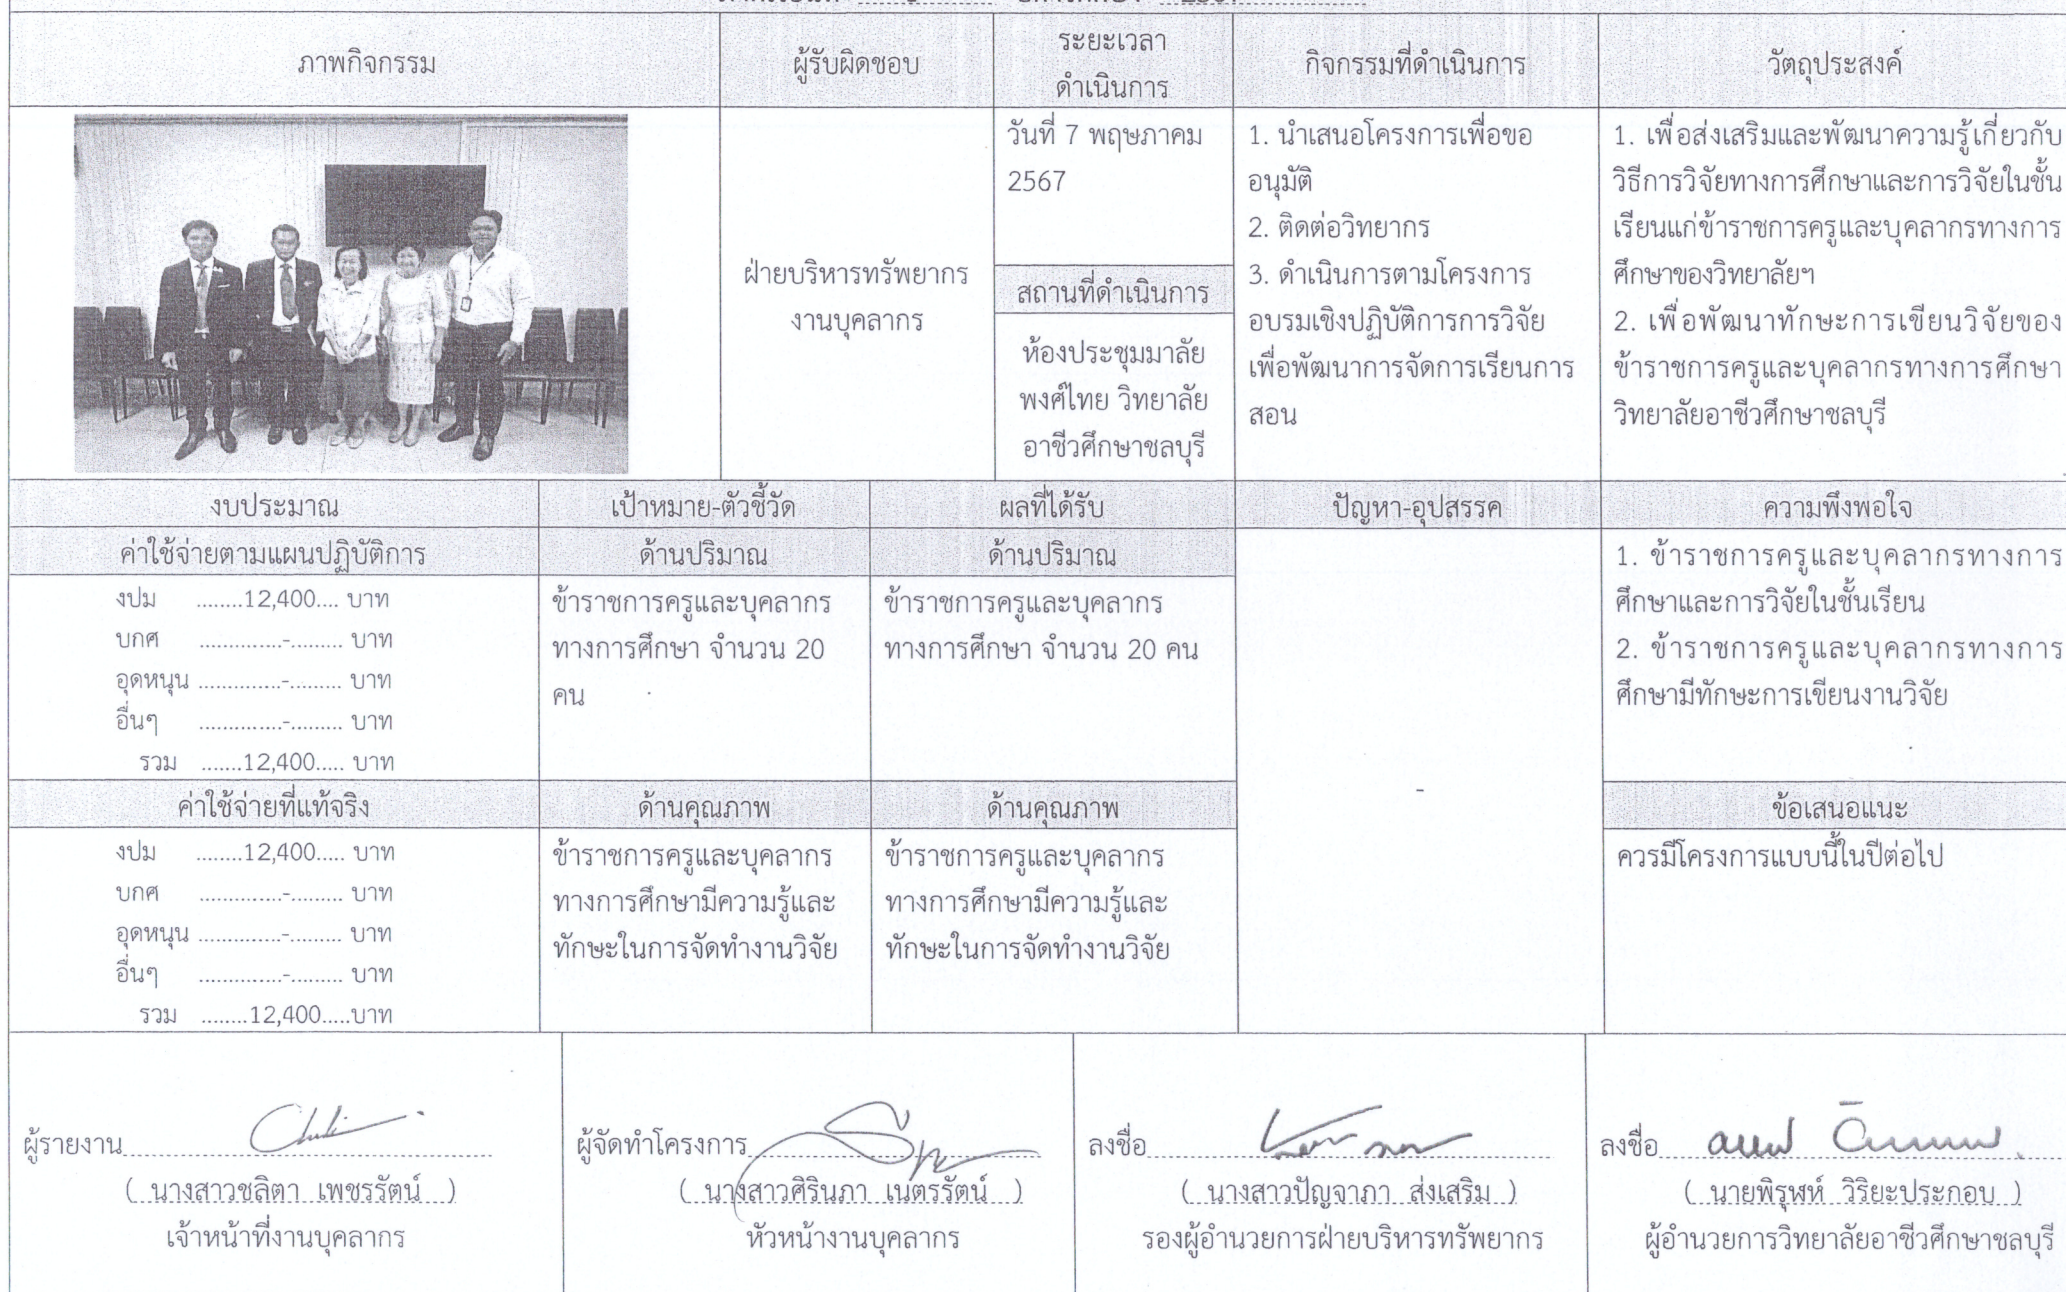 ภาพกิจกรรม
ผู้รับผิดชอบ
ระยะเวลา
ดำเนินการ
กิจกรรมที่ดำเนินการ
วัตถุประสงค์
ฝ่ายบริหารทรัพยากร
งานบุคลากร
วันที่ 7 พฤษภาคม
2567
สถานที่ดำเนินการ
ห้องประชุมมาลัย
พงศ์ไทย วิทยาลัย
อาชีวศึกษาชลบุรี
1. นำเสนอโครงการเพื่อขอ
อนุมัติ
2. ติดต่อวิทยากร
3. ดำเนินการตามโครงการ
อบรมเชิงปฏิบัติการการวิจัย
เพื่อพัฒนาการจัดการเรียนการ
สอน
1. เพื่อส่งเสริมและพัฒนาความรู้เกี่ยวกับ
วิธีการวิจัยทางการศึกษาและการวิจัยในชั้น
เรียนแก่ข้าราชการครูและบุคลากรทางการ
ศึกษาของวิทยาลัยฯ
2. เพื่อพัฒนาทักษะการเขียนวิจัยของ
ข้าราชการครูและบุคลากรทางการศึกษา
วิทยาลัยอาชีวศึกษาชลบุรี
งบประมาณ
เป้าหมาย-ตัวชี้วัด
ผลที่ได้รับ
ปัญหา-อุปสรรค
ความพึงพอใจ
ค่าใช้จ่ายตามแผนปฏิบัติการ
ด้านปริมาณ
ด้านปริมาณ
งปม ........12,400.... บาท
บกศ ..............-......... บาท
อุดหนุน ..............-......... บาท
อื่นๆ ..............-......... บาท
รวม .......12,400..... บาท
ข้าราชการครูและบุคลากร
ทางการศึกษา จำนวน 20
คน
ข้าราชการครูและบุคลากร
ทางการศึกษา จำนวน 20 คน
-
1. ข้าราชการครูและบุคลากรทางการ
ศึกษาและการวิจัยในชั้นเรียน
2. ข้าราชการครูและบุคลากรทางการ
ศึกษามีทักษะการเขียนงานวิจัย
ค่าใช้จ่ายที่แท้จริง
ด้านคุณภาพ
ด้านคุณภาพ
ข้อเสนอแนะ
งปม ........12,400..... บาท
บกศ ..............-......... บาท
อุดหนุน ..............-......... บาท
อื่นๆ ..............-......... บาท
รวม ........12,400.....บาท
ข้าราชการครูและบุคลากร
ทางการศึกษามีความรู้และ
ทักษะในการจัดทำงานวิจัย
ข้าราชการครูและบุคลากร
ทางการศึกษามีความรู้และ
ทักษะในการจัดทำงานวิจัย
ควรมีโครงการแบบนี้ในปีต่อไป
ผู้รายงาน
( นางสาวชลิตา เพชรรัตน์ )
เจ้าหน้าที่งานบุคลากร
ผู้จัดทำโครงการ
( นางสาวศิรินภา เนตรรัตน์ )
หัวหน้างานบุคลากร
ลงชื่อ
( นางสาวปัญจาภา ส่งเสริม )
รองผู้อำนวยการฝ่ายบริหารทรัพยากร
ลงชื่อ
( นายพิรุฬห์ วิริยะประกอบ )
ผู้อำนวยการวิทยาลัยอาชีวศึกษาชลบุรี